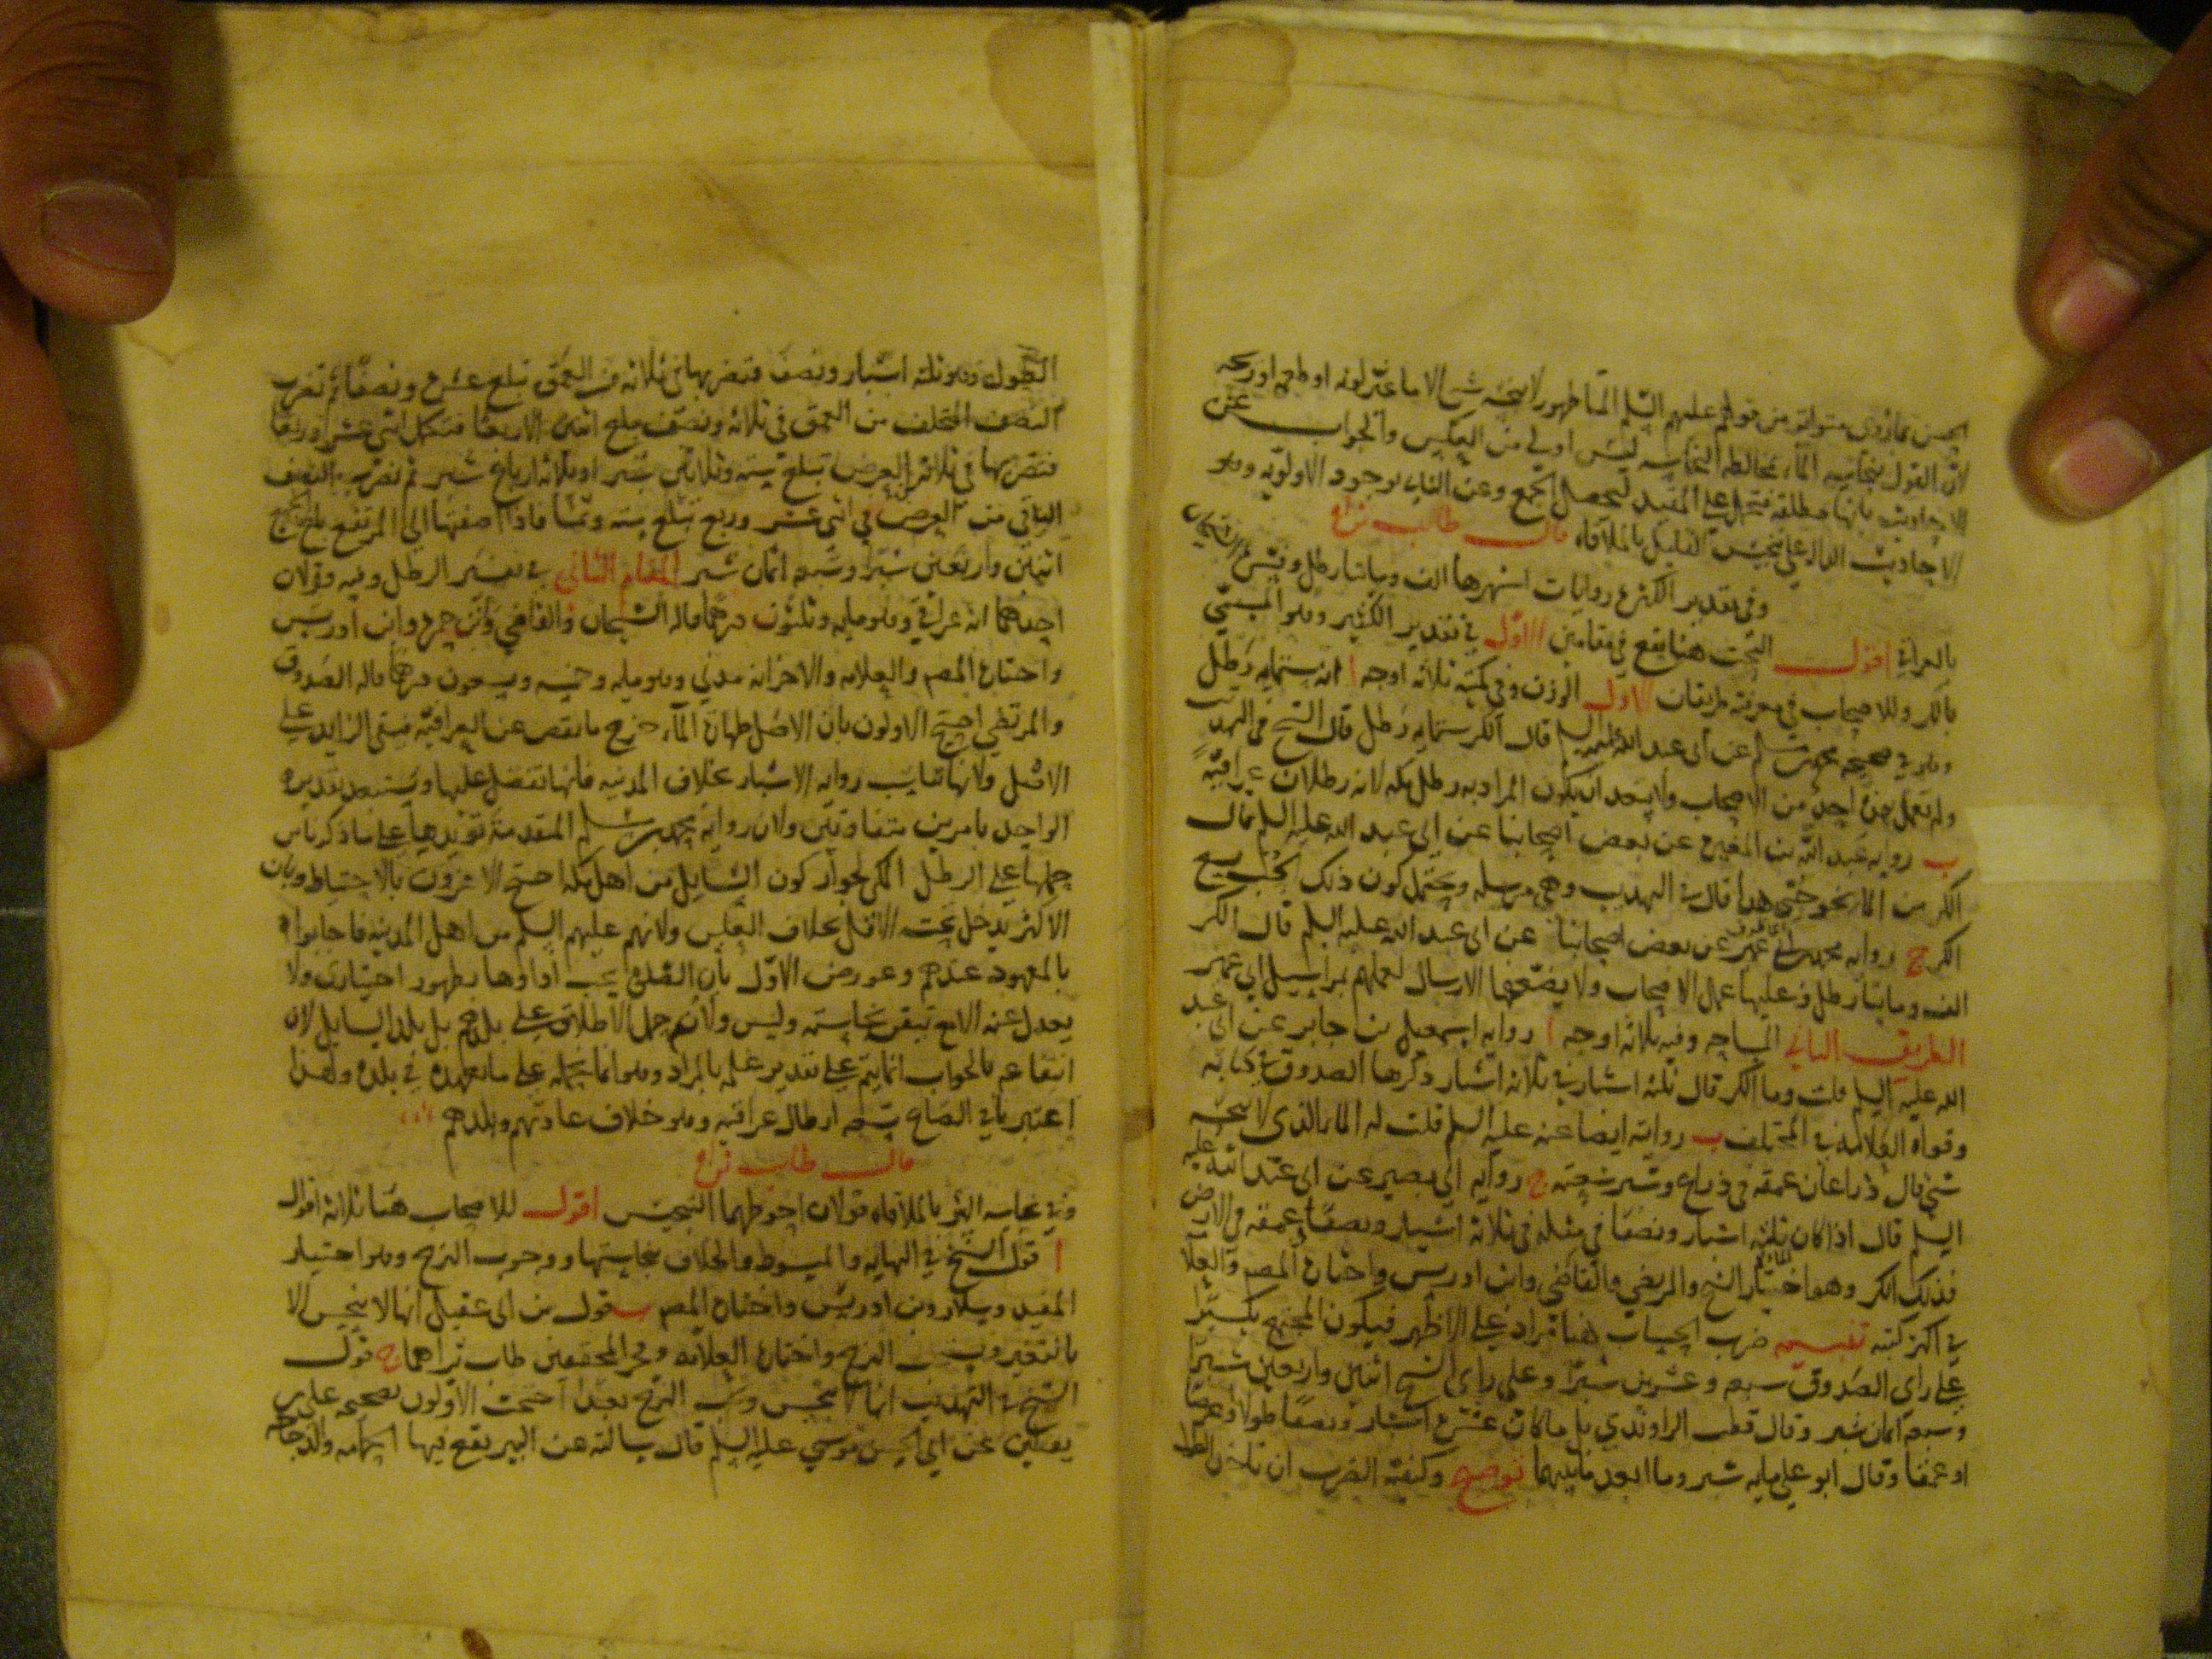 الحسن بما روى متواترا من قولهم عليهم السلم الماء طهور لا ينجسه شئ الا ما غير لونه او طعمه او ريحه
لان القول بنجاسة الماء بمخالطة النجاسه ليس اولى من العكس والجواب عن
الاحاديث بانها مطلقة فتحمل على المقيد ليحصل الجمع وعن الثاني بوجود الاولويه وهو
الاحاديث الداله على تنجيس القليل بالملاقاه قال طاب ثراه
وفى تقدير الكثرة روايات اشهرها الف ومايتا رطل وفسره الشيخان
بالعراقي اقول البحث هنا يقع في مقامين الاول في تقدير الكثير وهو المسمى
بالكر وللاصحاب في معرفته طريقان الاول الوزن وفى كميته ثلاثه اوجه ا انه ستمايه رطل
وهو في صحيحة محمد بن مسلم عن ابى عبد الله عليه السلم قال الكر ستمايه رطل قال الشيخ في التهذيب
ولم يعمل بهذا احد من الاصحاب ولا يبعد ان يكون المراد به رطل مكه لانه رطلان عراقيه
ب روايه عبد الله بن المغيره عن بعض اصحابنا عن ابى عبد الله عليه السلم قال
الكر من الماء نحو حبى هذا قال في التهذيب وهى مرسله ويحتمل كون ذلك الحب يسع
الكر ج روايه محمد بن ابى عمير عن بعض اصحابنا عن ابى عبد الله عليه السلم قال الكر
الف ومايتا رطل وعليها عمل الاصحاب ولا يضعفها الارسال لعملهم بمراسيل ابى عمير
الطريق الثاني المساحه وفيه ثلاثه اوجه ا روايه اسمعيل بن جابر عن ابى عبد
الله عليه السلم قلت وما الكر قال ثلثه اشبار في ثلاثه اشبار ذكرها الصدوق في كتابه
وقواه العلامه في المختلف ب روايته ايضا عنه عليه السلم قلت له الماء الذى لا ينجسه
شئ قال ذراعان عمقه في ذراع وشبر سعته ج روايه ابى بصير عن ابى عبد الله عليه
السلم قال اذا كان ثلثه اشبار ونصفا في مثله في ثلاثه اشبار ونصفا عمقه في الارض
فذلك الكر وهو اختيار الشيخ والمرتضى والقاضي وابن ادريس واختاره المصنف والعلامه
في اكثر كتبه تنبيه ضرب الحساب هنا مراد على الاظهر فيكون المجتمع تكسيرا
على راى الصدوق سبعه وعشرين شبرا وعلى راى الشيخ اثنين واربعين شبرا
وسبعه اثمان شبر وقال قطب الراوندي بل ما كان عشره اشبار ونصفا طولا وعرضا
او عمقا وقال ابو على مايه شبر وما ابعد ما بينهما توضيح وكيفيه الضرب ان تاخذ
الطول وهو ثلثه اشبار ونصف فتضربها في ثلاثه من العمق تبلغ عشره ونصفا ثم تضرب
النصف المتخلف من العمق في ثلاثه ونصف يبلغ اثنين الا ربعا فتكمل اثنى عشر وربعا
فتضربها في ثلاثة العرض تبلغ سته وثلاثين شبرا وثلاثه ارباع شبر ثم تضرب النصف
الباقي من العرض في اثنى عشر وربع تبلغ سته وثمنا فاذا اضفتها الى المرتفع بلغ الجميع
اثنين واربعين شبرا وسبعه اثمان شبر المقام الثاني في تفسير الرطل وفيه قولان
احدهما انه عراقي وهو مايه وثلثون درهما قاله الشيخان والقاضي وابن حمزه وابن ادريس
واختاره المصنف والعلامه والاخر انه مدني وهو مايه وخمسه وتسعون درهما قاله الصدوق
والمرتضي احتج الاولون بان الاصل طهارة الماء خرج ما نقص عن العراقيه فيبقى الزايد على
الاصل ولانها تناسب روايه الاشبار بخلاف المدنيه فانها تفضل عليها ويستبعد تقديره
الواحد بامرين متفاوتين ولان روايه محمد بن مسلم المتقدمة تؤيدها على ما ذكرناه من
حملها على الرطل المكى لجواز كون السايل من اهل مكه احتج الاخرون بالاحتياط وبان
الاكثر يدخل تحته الاقل بخلاف العكس ولانهم عليهم السلم من اهل المدينه فاجابوا
بالمعهود عندهم وعورض الاول بان الصلوه يجب اداوها بطهور اختيارى ولا
يعدل عنه الا مع تيقن نجاسته وليس ولانسلم حمل الاطلاق على بلدهم بل بلد السايل لان
انتفاعه بالجواب انما يتم على تقدير علمه بالمراد وهو انما يحمله على ما يعهده في بلده ولهذا
اعتبر في الصاع تسعه ارطال عراقيه وهو خلاف عادتهم وبلدهم
قال طاب ثراه
وفي نجاسه البئر بالملاقاه قولان احوطهما التنجيس اقول للاصحاب هنا ثلاثه اقوال
ا قول الشيخ في النهايه والمبسوط والخلاف بنجاستها ووجوب النزح وهو اختيار
المفيد وسلار وبن ادريس واختاره المصنف ب قول بن ابى عقيل انها لا ينجس الا
بالتغير ويستحب النزح واختاره العلامه وفخر المحققين طاب ثراهما ج قول
الشيخ في التهذيب انها لا تنجس ويجب النزح تعبدا احتج الاولون بصحيحه على بن
يقطين عن ابى الحسن موسى عليه السلم قال سالته عن البير تقع فيها الحمامه والدجاجه